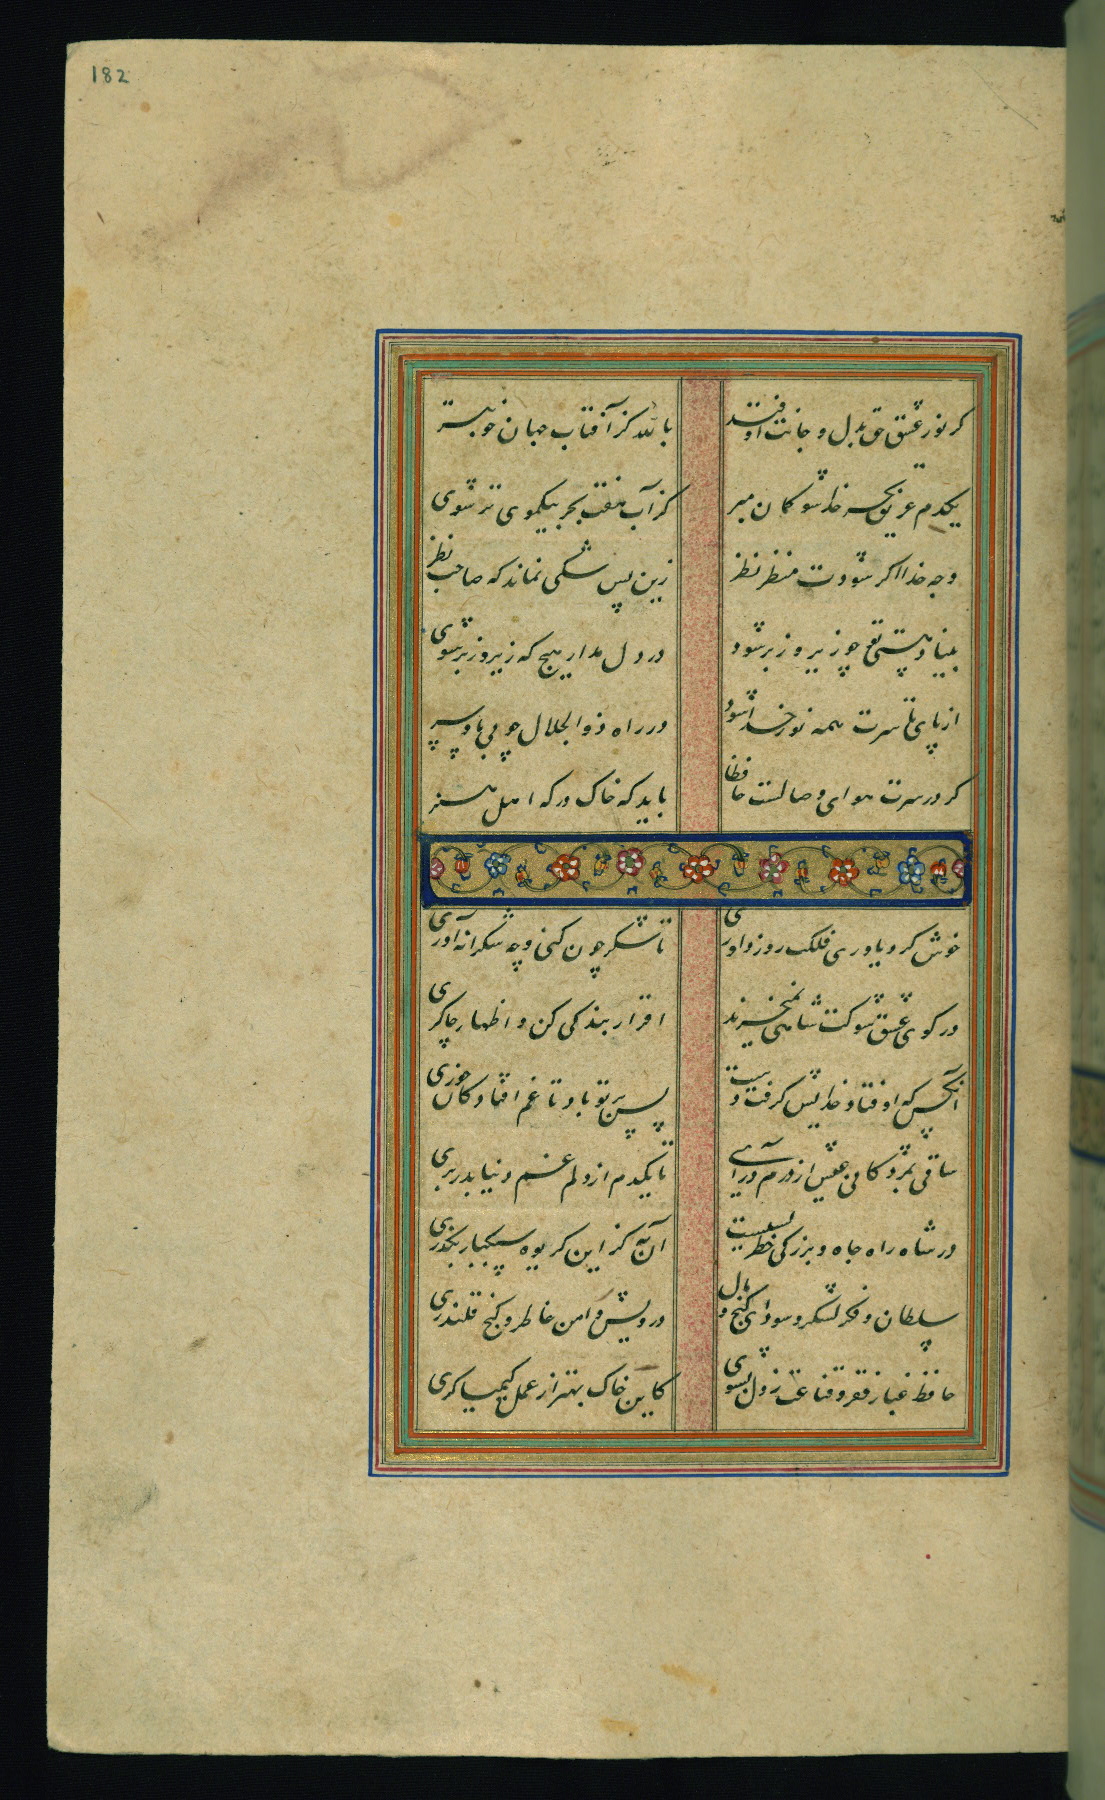 182
کر نور عشق حق بدل و جانت اوفتد
بالله کز آفتاب جهان خوبتر
یکدم غریق بحر خدا شو کمان مبر
کز آب هفت بحر بیکموی تر شوی
وجه خدا اکر شودت منظر نظر
زین پس شکی نماند که صاحب نظر
بنیاد هستی تو چو زیر و زبر شود
در دل مدار هیچ که زیر و زبر شوی
از پای تا سرت همه نور خدا شود
در راه ذوالجلال چو بی پا و سر
کر در سرت هوای وصالست حافظا
باید که خاک درکه اهل هنر
خوش کرد یاوری فلکت روز داوری
تا شکر چون کنی و چه شکرانه آوری
در کوی عشق شوکت شاهی نمیخرند
اقرار بندکی کن و اظهار چاکری
آنکس که اوفتاد خدایش کرفت دست
پس بر تو باد تا غم افتادکان خوری
ساقی بمژدکانی عیش از درم درآی
تا یکدم از دلم غم دنیا بدر بری
در شاه راه جاه و بزرکی خطر بسیست
آن به کز این کریوه سبکبار بکذری
سلطان و فکر لشکر و سودای کنج و مال
درویش و امن خاطر و کنج قلندری
حافظ غبار فقر و قناعت ز دل بشوی
کاین خاک بهتر از عمل کیمیاکری